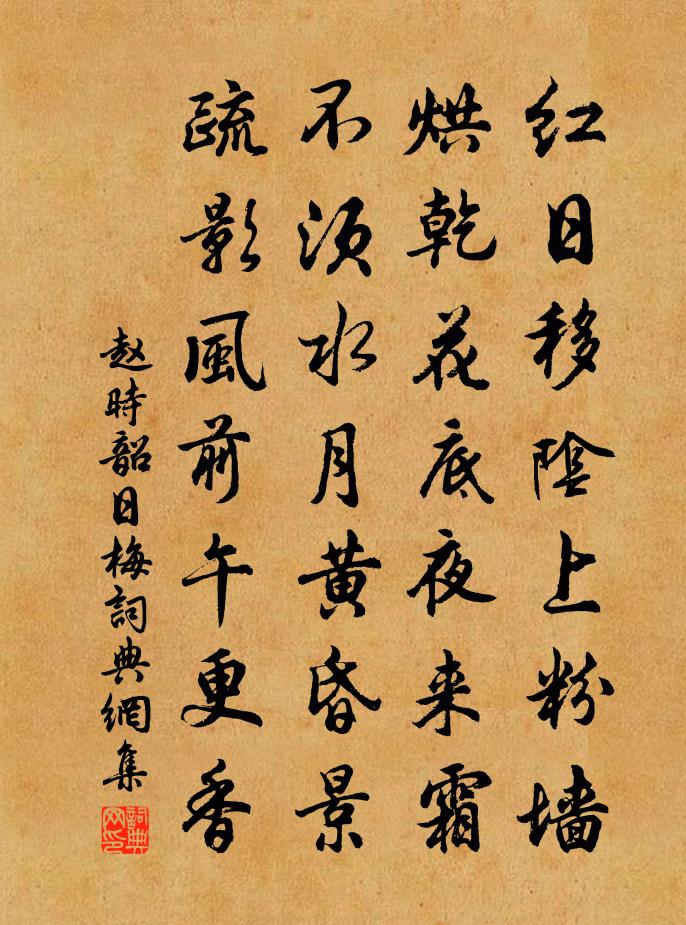 红日移陰上粉墙
烘乾花底夜来霜
不须水月黄昏景
疏影風前午更香
赵時韶日梅詞典網集
詞典网印